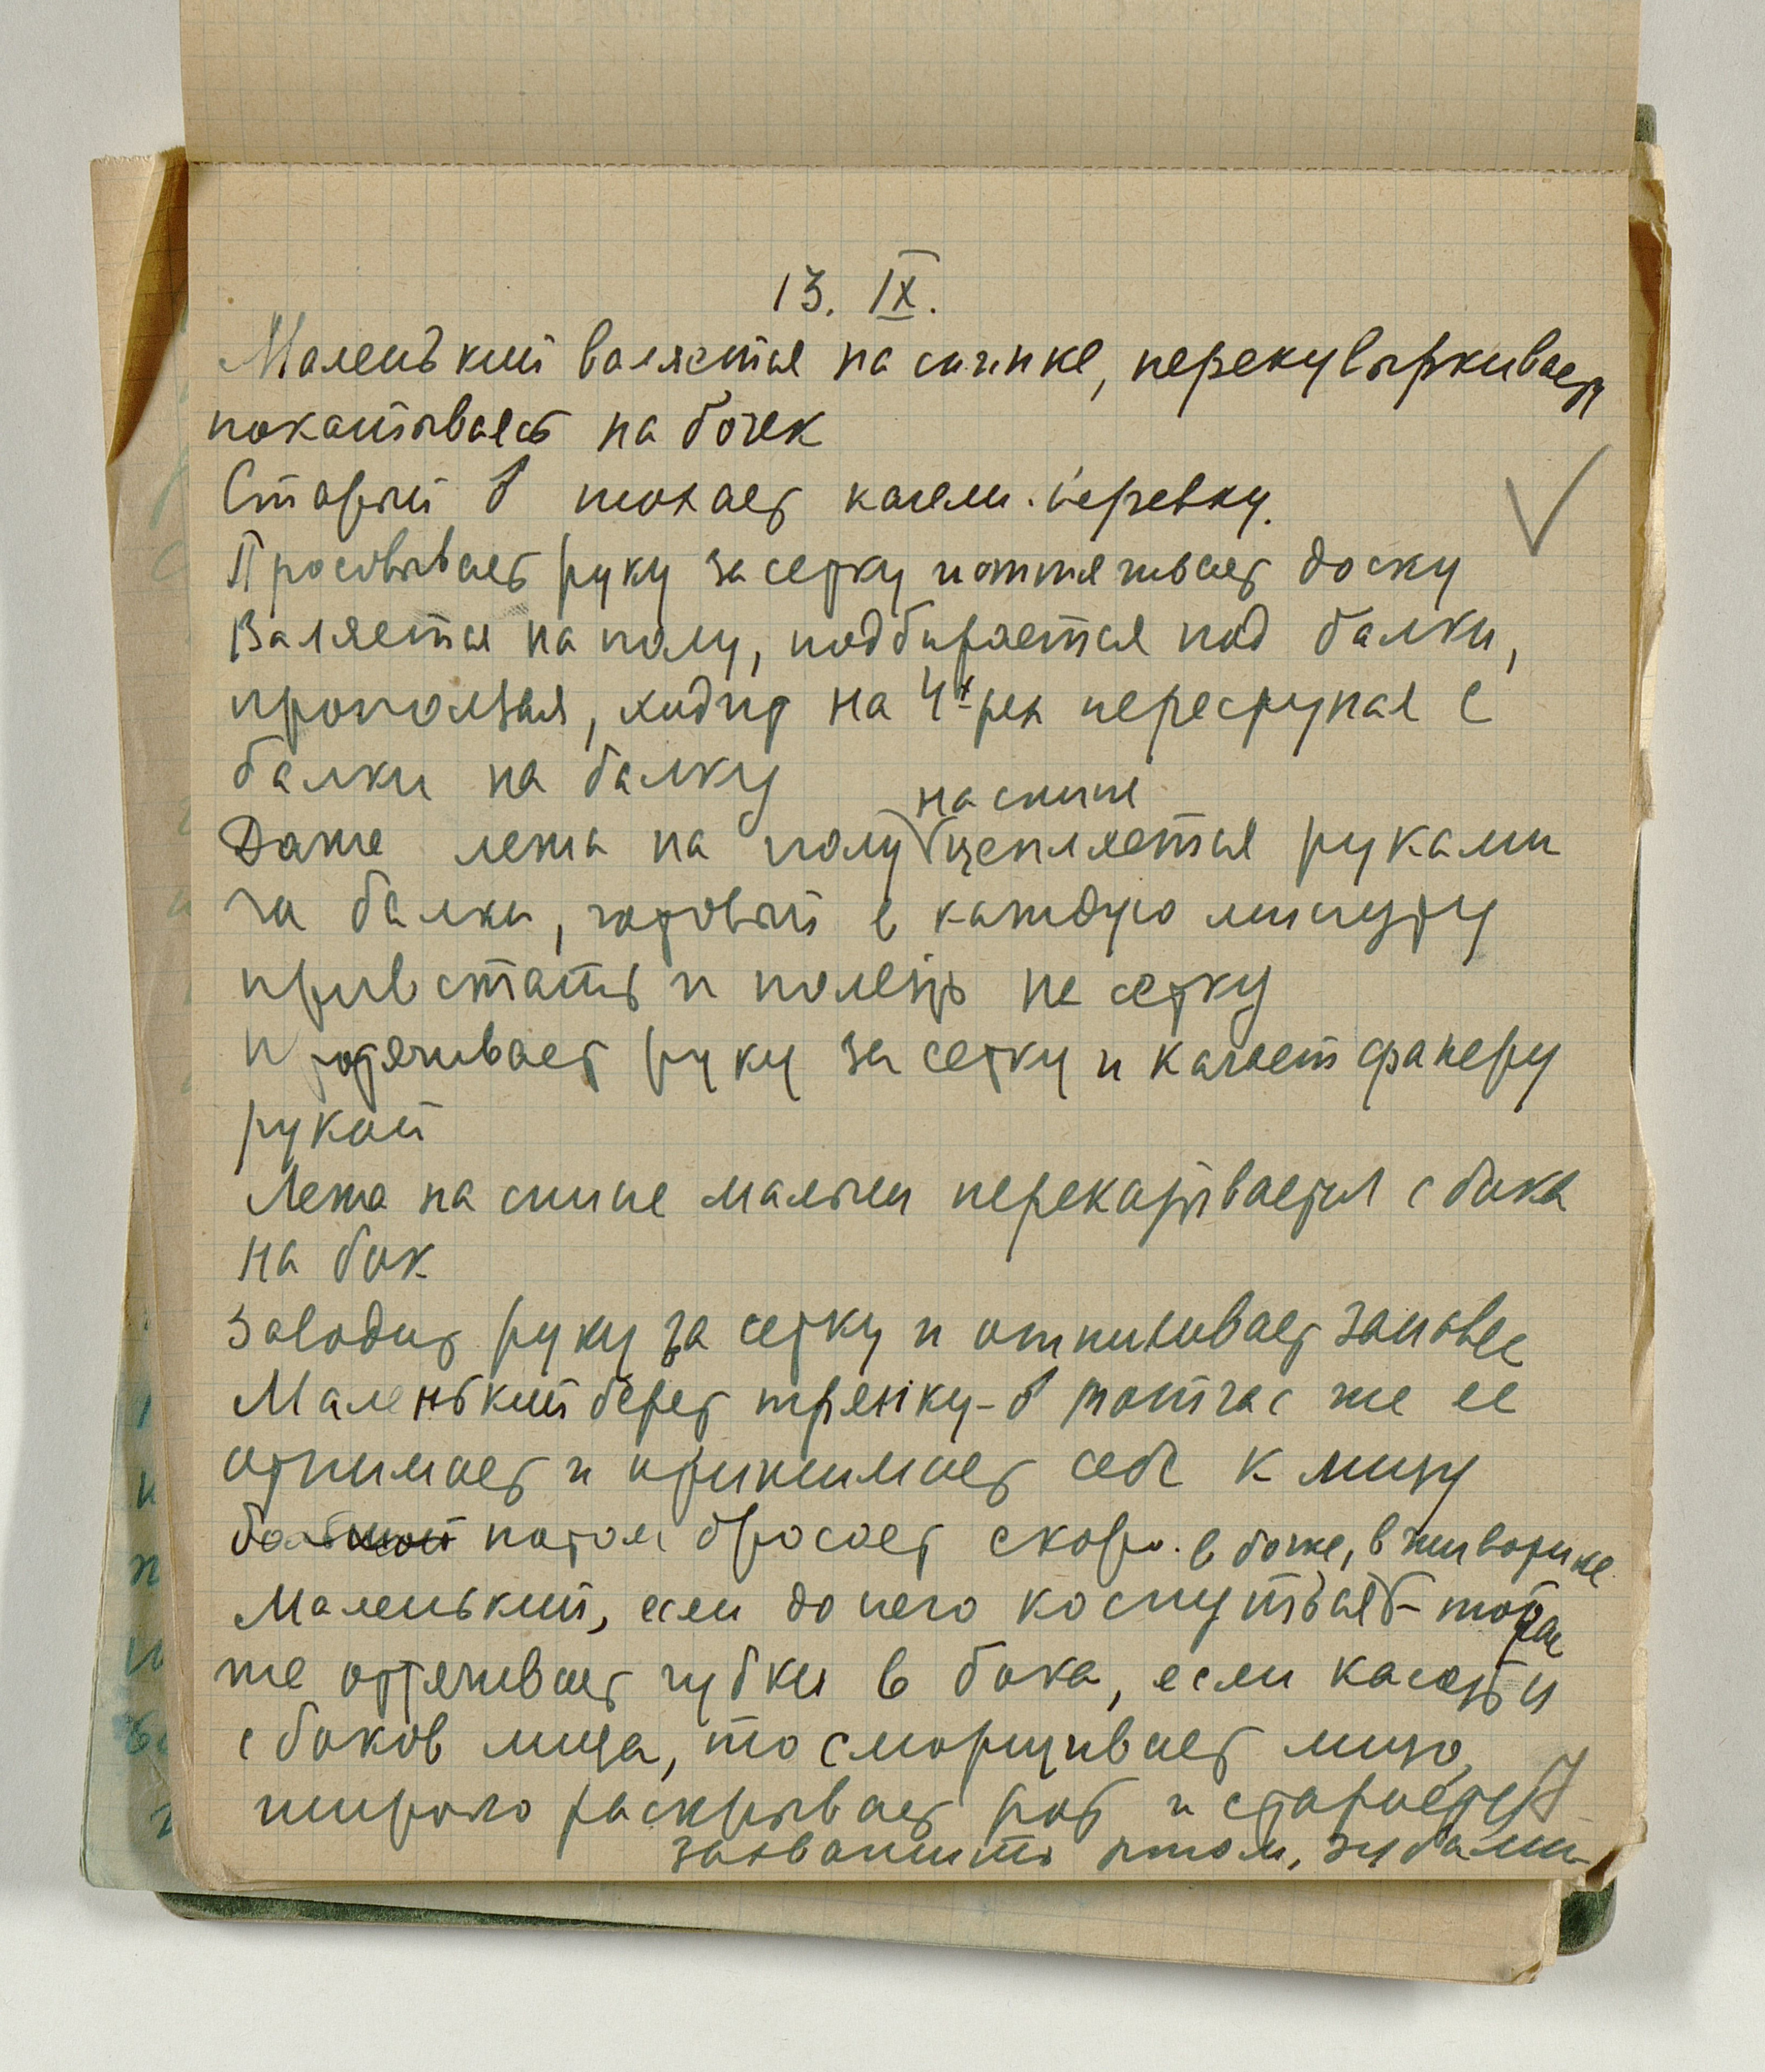 13. IX.
Маленький валяется на спинке, перекувыркивает
покатываясь на бочек
Старый б толкает качели. веревку.
Просовывает руку за сетку и оттягивает доску
Валяется на полу, подбирается под балки,
проползая, ходит на 4х рук переступая с
балки на балку
на спине
Даже лежа на полу цепляется руками
за балки, готовый в каждую минуту
привстать и полезть на сетку
Протягивает руку за сетку и качает фанеру
рукой
Лежа на спине малыш перекатывается с бока
на бок
Заводит руку за сетку и отпихивает занавес
Маленький берет тряпку - б тотчас же ее
отнимает и прижимает себе к лицу
потом бросает скоро. в боке, в животике
Маленький, если до него коснуться - тотчас
же оттягивает губки в бока, если касаться
с боков лица, то сморщивает лицо,
широко раскрывает рот и старается
захватить ртом, зубами